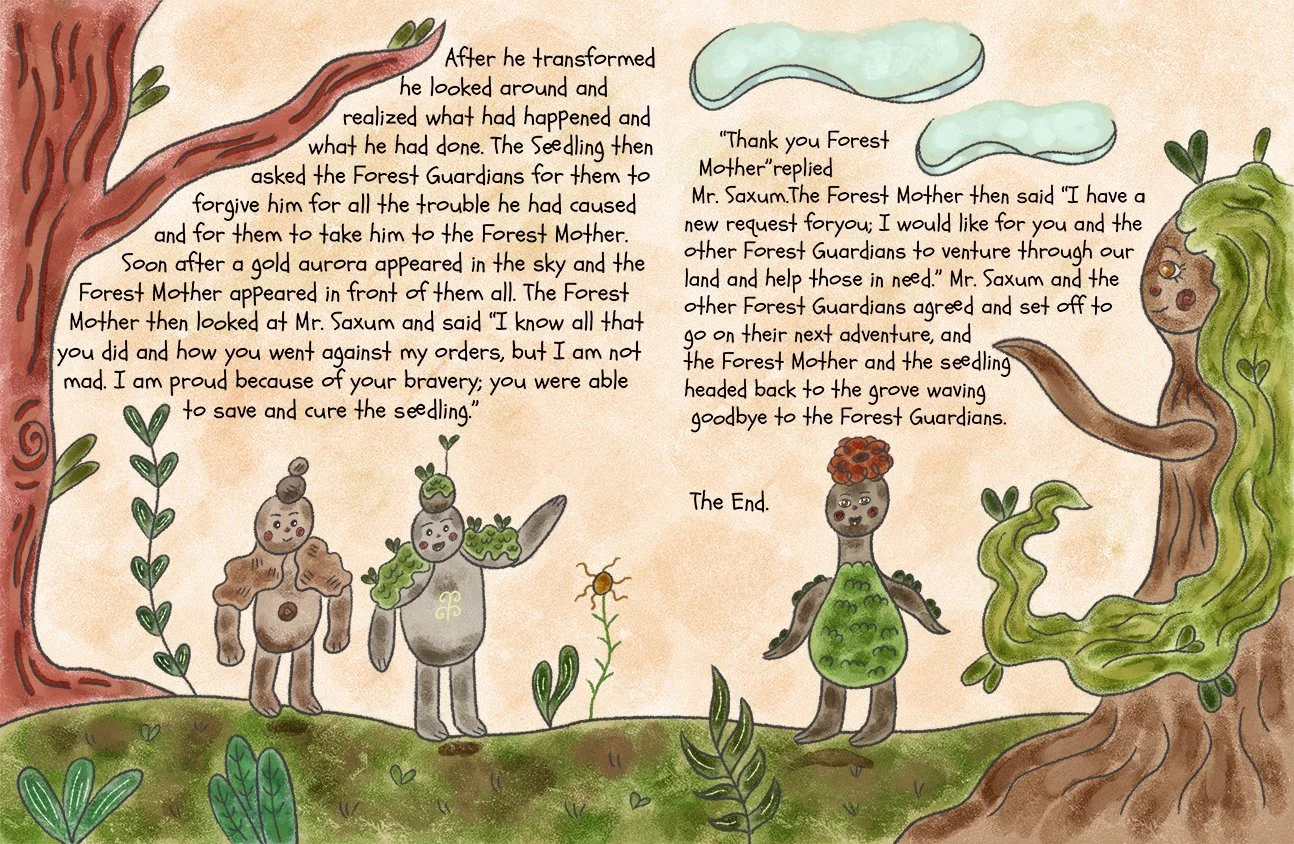 After he transformed
he looked around and
realized what had happened and
what he had done. The Seedling then
asked the Forest Guardians for them to
forgive him for all the trouble he had caused
and for them to take him to the Forest Mother.
Soon after a gold aurora appeared in the sky and the
Forest Mother appeared in front of them all. The Forest
Mother then looked at Mr. Saxum and said “I know all that
you did and how you went against my orders, but I am not
mad. I am proud because of your bravery; you were able
to save and cure the seedling.”
“Thank you Forest
Mother”replied
Mr. Saxum.The Forest Mother then said “I have a
new request foryou; I would like for you and the
other Forest Guardians to venture through our
land and help those in need.” Mr. Saxum and the
other Forest Guardians agreed and set off to
go on their next adventure, and
the Forest Mother and the seedling
headed back to the grove waving
goodbye to the Forest Guardians.
The End.